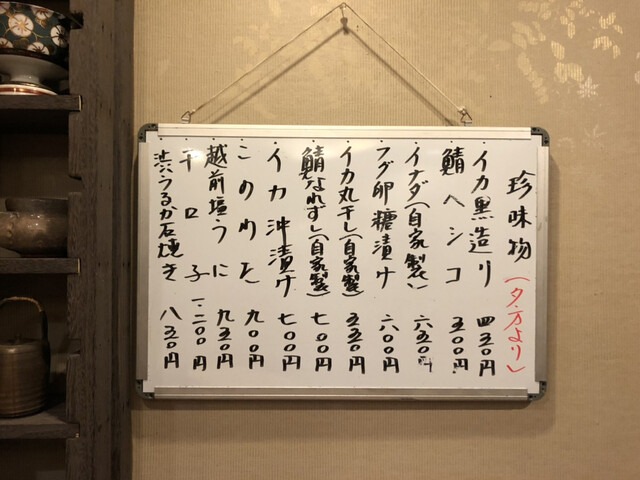 珍味物（夕方より）
・イカ黒造り 四五〇円
・鯖ヘシコ 五〇〇円
・イナダ（自家製） 六五〇円
・フグ卵糖漬け 六〇〇円
・イカ丸干し（自家製） 五五〇円
・鯖なれずし（自家製） 七〇〇円
・イカ沖漬け 七〇〇円
・このわた 九〇〇円
・越前塩うに 九五〇円
・干口子 一.二〇〇円
・渋うるか石焼き 八五〇円